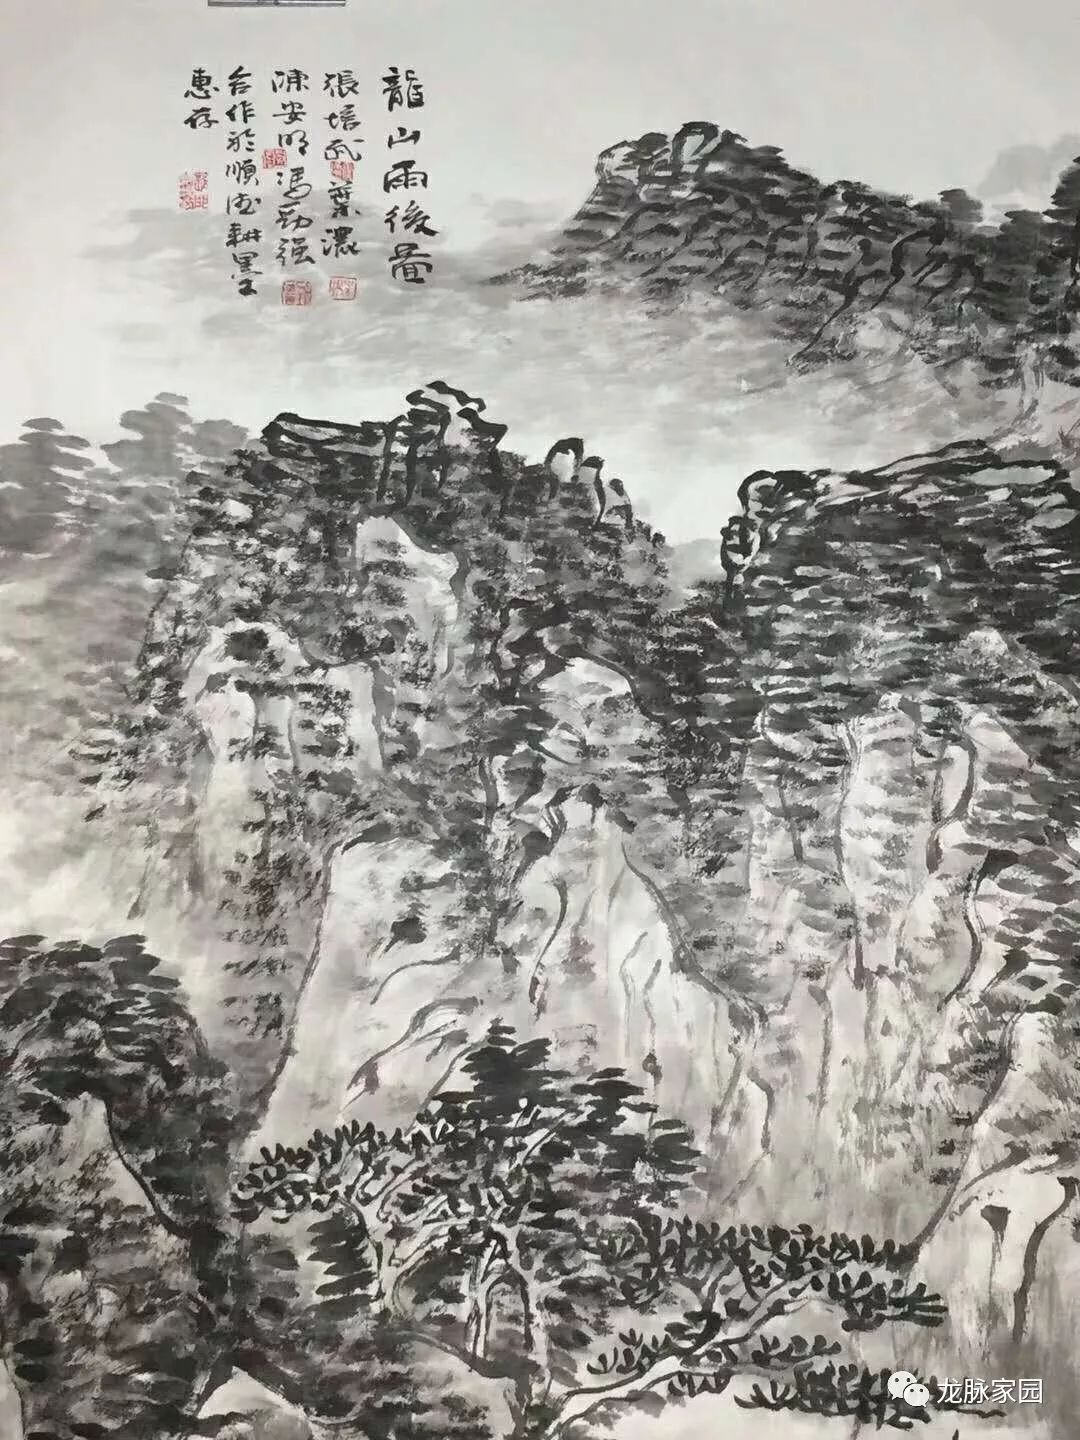 龍山雨後圖
張培武 葉瀵
陳安明 馮勁强
合作於順德耕墨工
惠存
龙脉家园